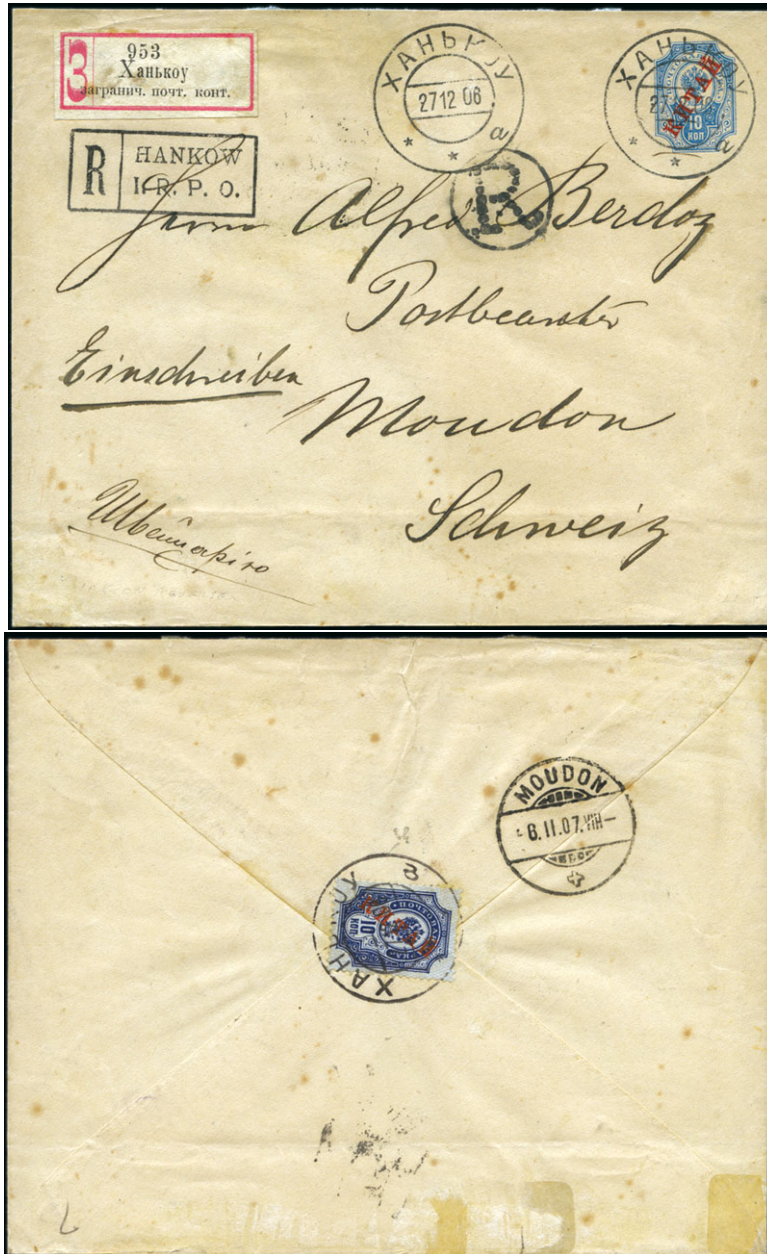 953
Ханькоу
загранич. почт. конт.
З
R
HANKOW
I. R. P. O.
ХАНЬКОУ
27 12 06
a
ХАНЬКОУ
a
КИТАЙ
10
КОП
R
Herrn Alfred Berdoz
Postbeamter
Einschreiben
Moudon
Schweiz
Швейцарію
MOUDON
6.II.07.VIII—
ХАНЬКОУ
В
КИТАЙ
10
КОП